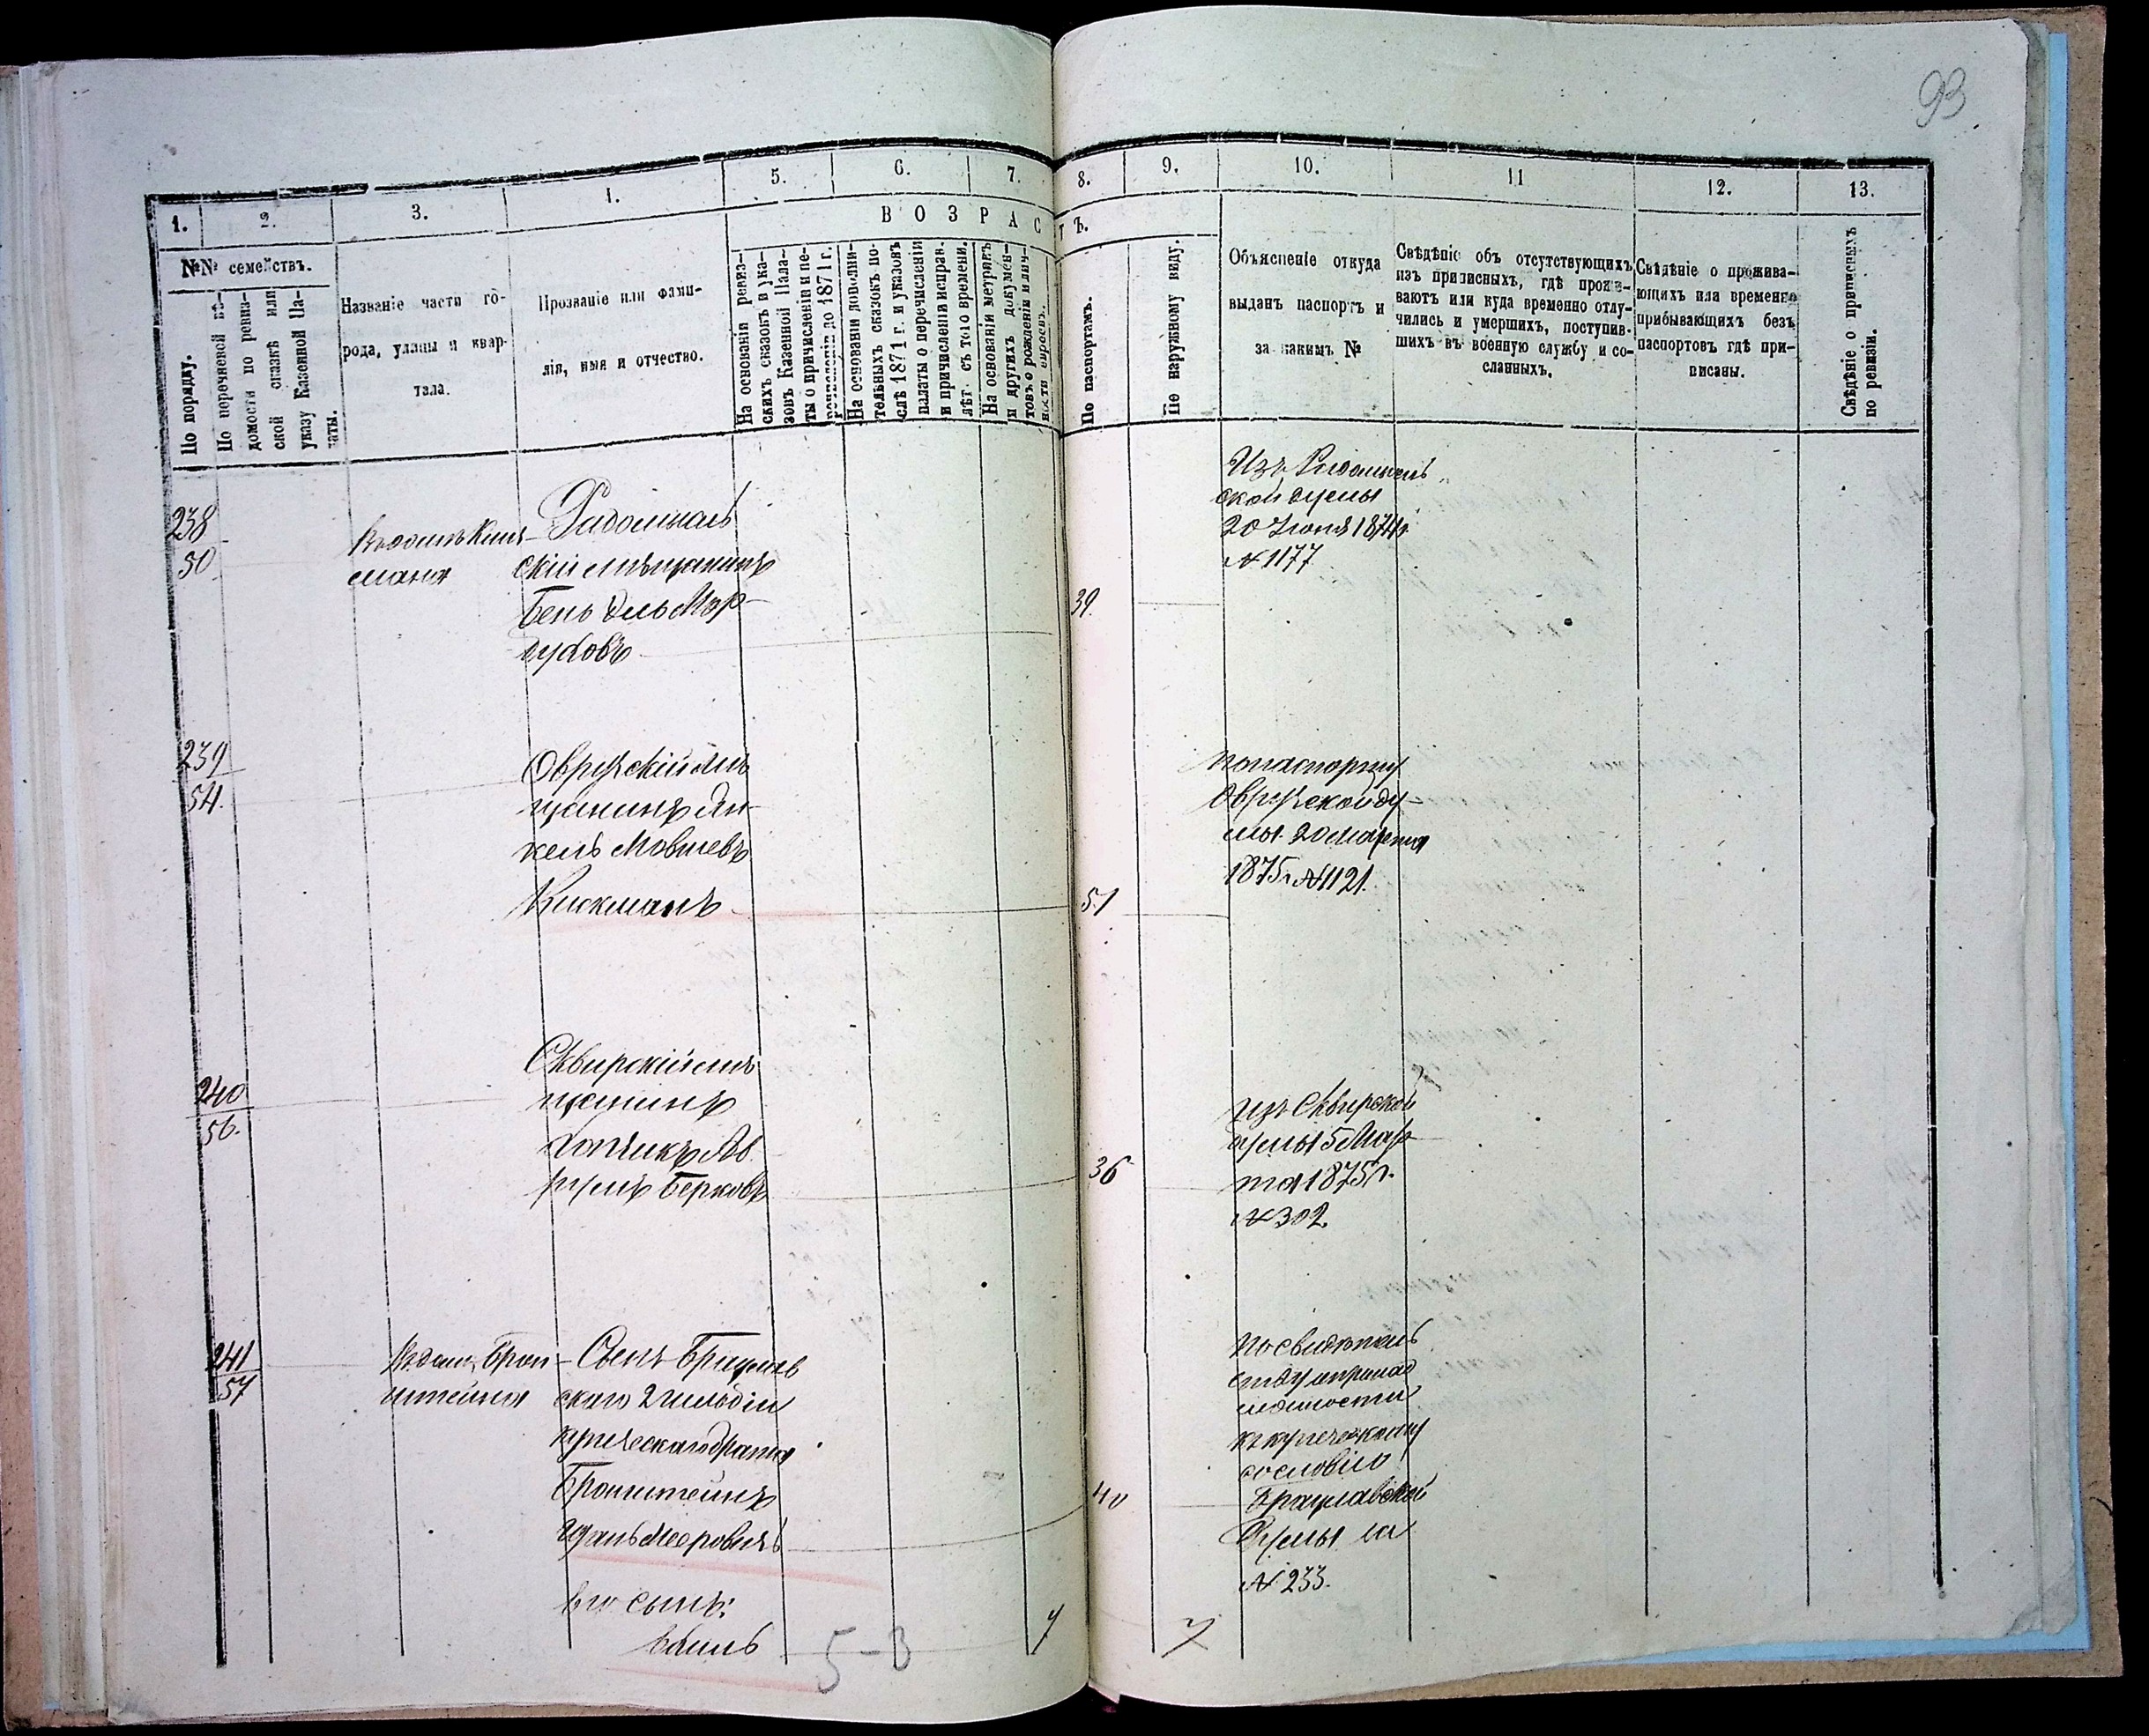 93
1.
2.
3.
4.
5.
6.
7.
8.
9.
10.
11
12.
13.
ВОЗРАСТЪ.
№№ семействъ.
По порядку.
По перечневой вѣ-
домости по ревиз-
ской сказкѣ или
указу Казенной Па-
латы.
Названіе части го-
рода, улицы и квар-
тала.
Прозваніе или фами-
лія, имя и отчество.
На основаніи ревиз-
скихъ сказокъ и ука-
зовъ Казенной Пала-
ты о причисленіи и пе-
речисленіи до 1871 г.
На основаніи дополни-
тельныхъ сказокъ по-
слѣ 1871 г. и указовъ
палаты о перечисленіи
и причисленіи исправ.
лѣт. съ того времени.
На основаніи метрикъ
и другихъ докумен-
товъ о рожденіи и лич-
ности евреевъ.
По паспортамъ.
По наружному виду.
Объясненіе откуда
выданъ паспортъ и
за какимъ №
Свѣдѣніе объ отсутствующихъ
изъ приписныхъ, гдѣ прожи-
ваютъ или куда временно отлу-
чились и умершихъ, поступив-
шихъ въ военную службу и со-
сланныхъ.
Свѣдѣніе о прожива-
ющихъ или временно
прибывающихъ безъ
паспортовъ гдѣ при-
писаны.
Свѣдѣніе о приписныхъ
по ревизіи.
238
50
Въ домѣ
Радомысль
скій мѣщанинъ
Бень
39
Изъ Радомысль
ской думы
20 Іюня 1874 г
№ 1177
239
54.
Овручскій мѣ
щанинъ Ян-
кель Мовшевъ
Кискманъ
51
по паспорту
Овручской ду-
мы 20 марта
1875 г № 1121.
240
56.
Сквирскій мѣ
щанинъ
Копчикъ Ав
румъ Берковъ
36
Изъ Сквирской
думы 5 Мар
та 1875 г.
№ 302.
241
57
Въ дом. Брон
штейна
Сынъ Брацлав
скаго 2 гильдіи
купеческаго брата
Бронштейнъ
Мееровичъ
его сынъ:
5-3
40
по свидѣтель
ству о принад
лежности
къ купеческому
сословію
Брацлавской
Думы за
№ 233.